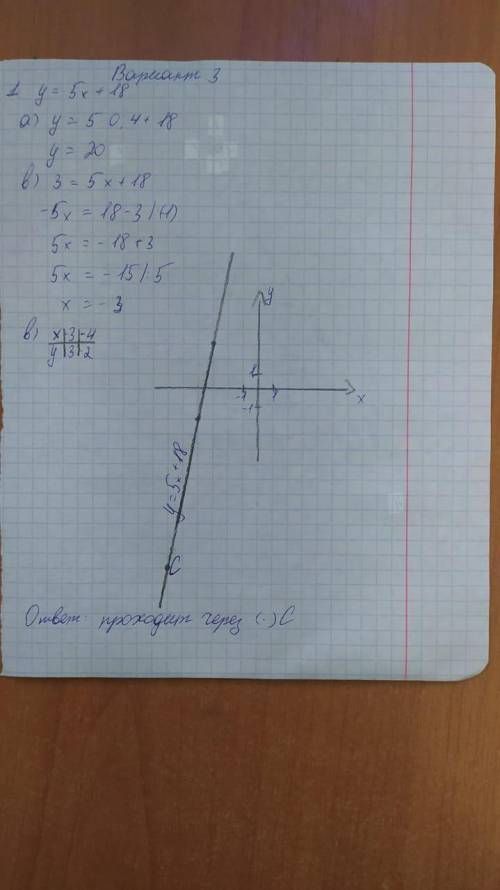 Вариант 3
1. y = 5x + 18
а) y = 5·0,4 + 18
y = 20
в) 3 = 5x + 18
-5x = 18 - 3 /(-1)
5x = - 18 + 3
5x = - 15 /: 5
x = - 3
в) x | -3 | -4
y | 3 | -2
y
1
-1 1 x
-1
y = 5x + 18
C
Ответ: проходит через (·) C